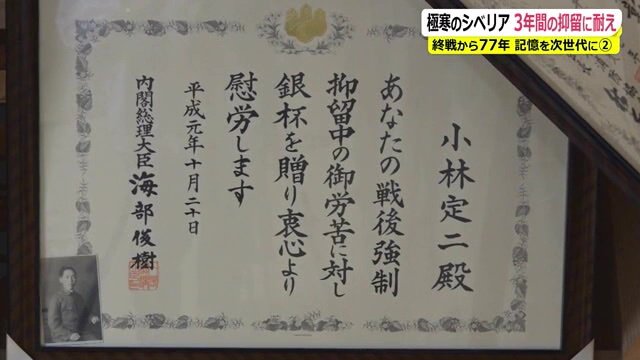 極寒のシベリア 3年間の抑留に耐え
終戦から77年 記憶を次世代に②
小林定二殿
あなたの戦後強制
抑留中の御労苦に対し
銀杯を贈り衷心より
慰労します
平成元年十月二十日
内閣総理大臣 海部俊樹